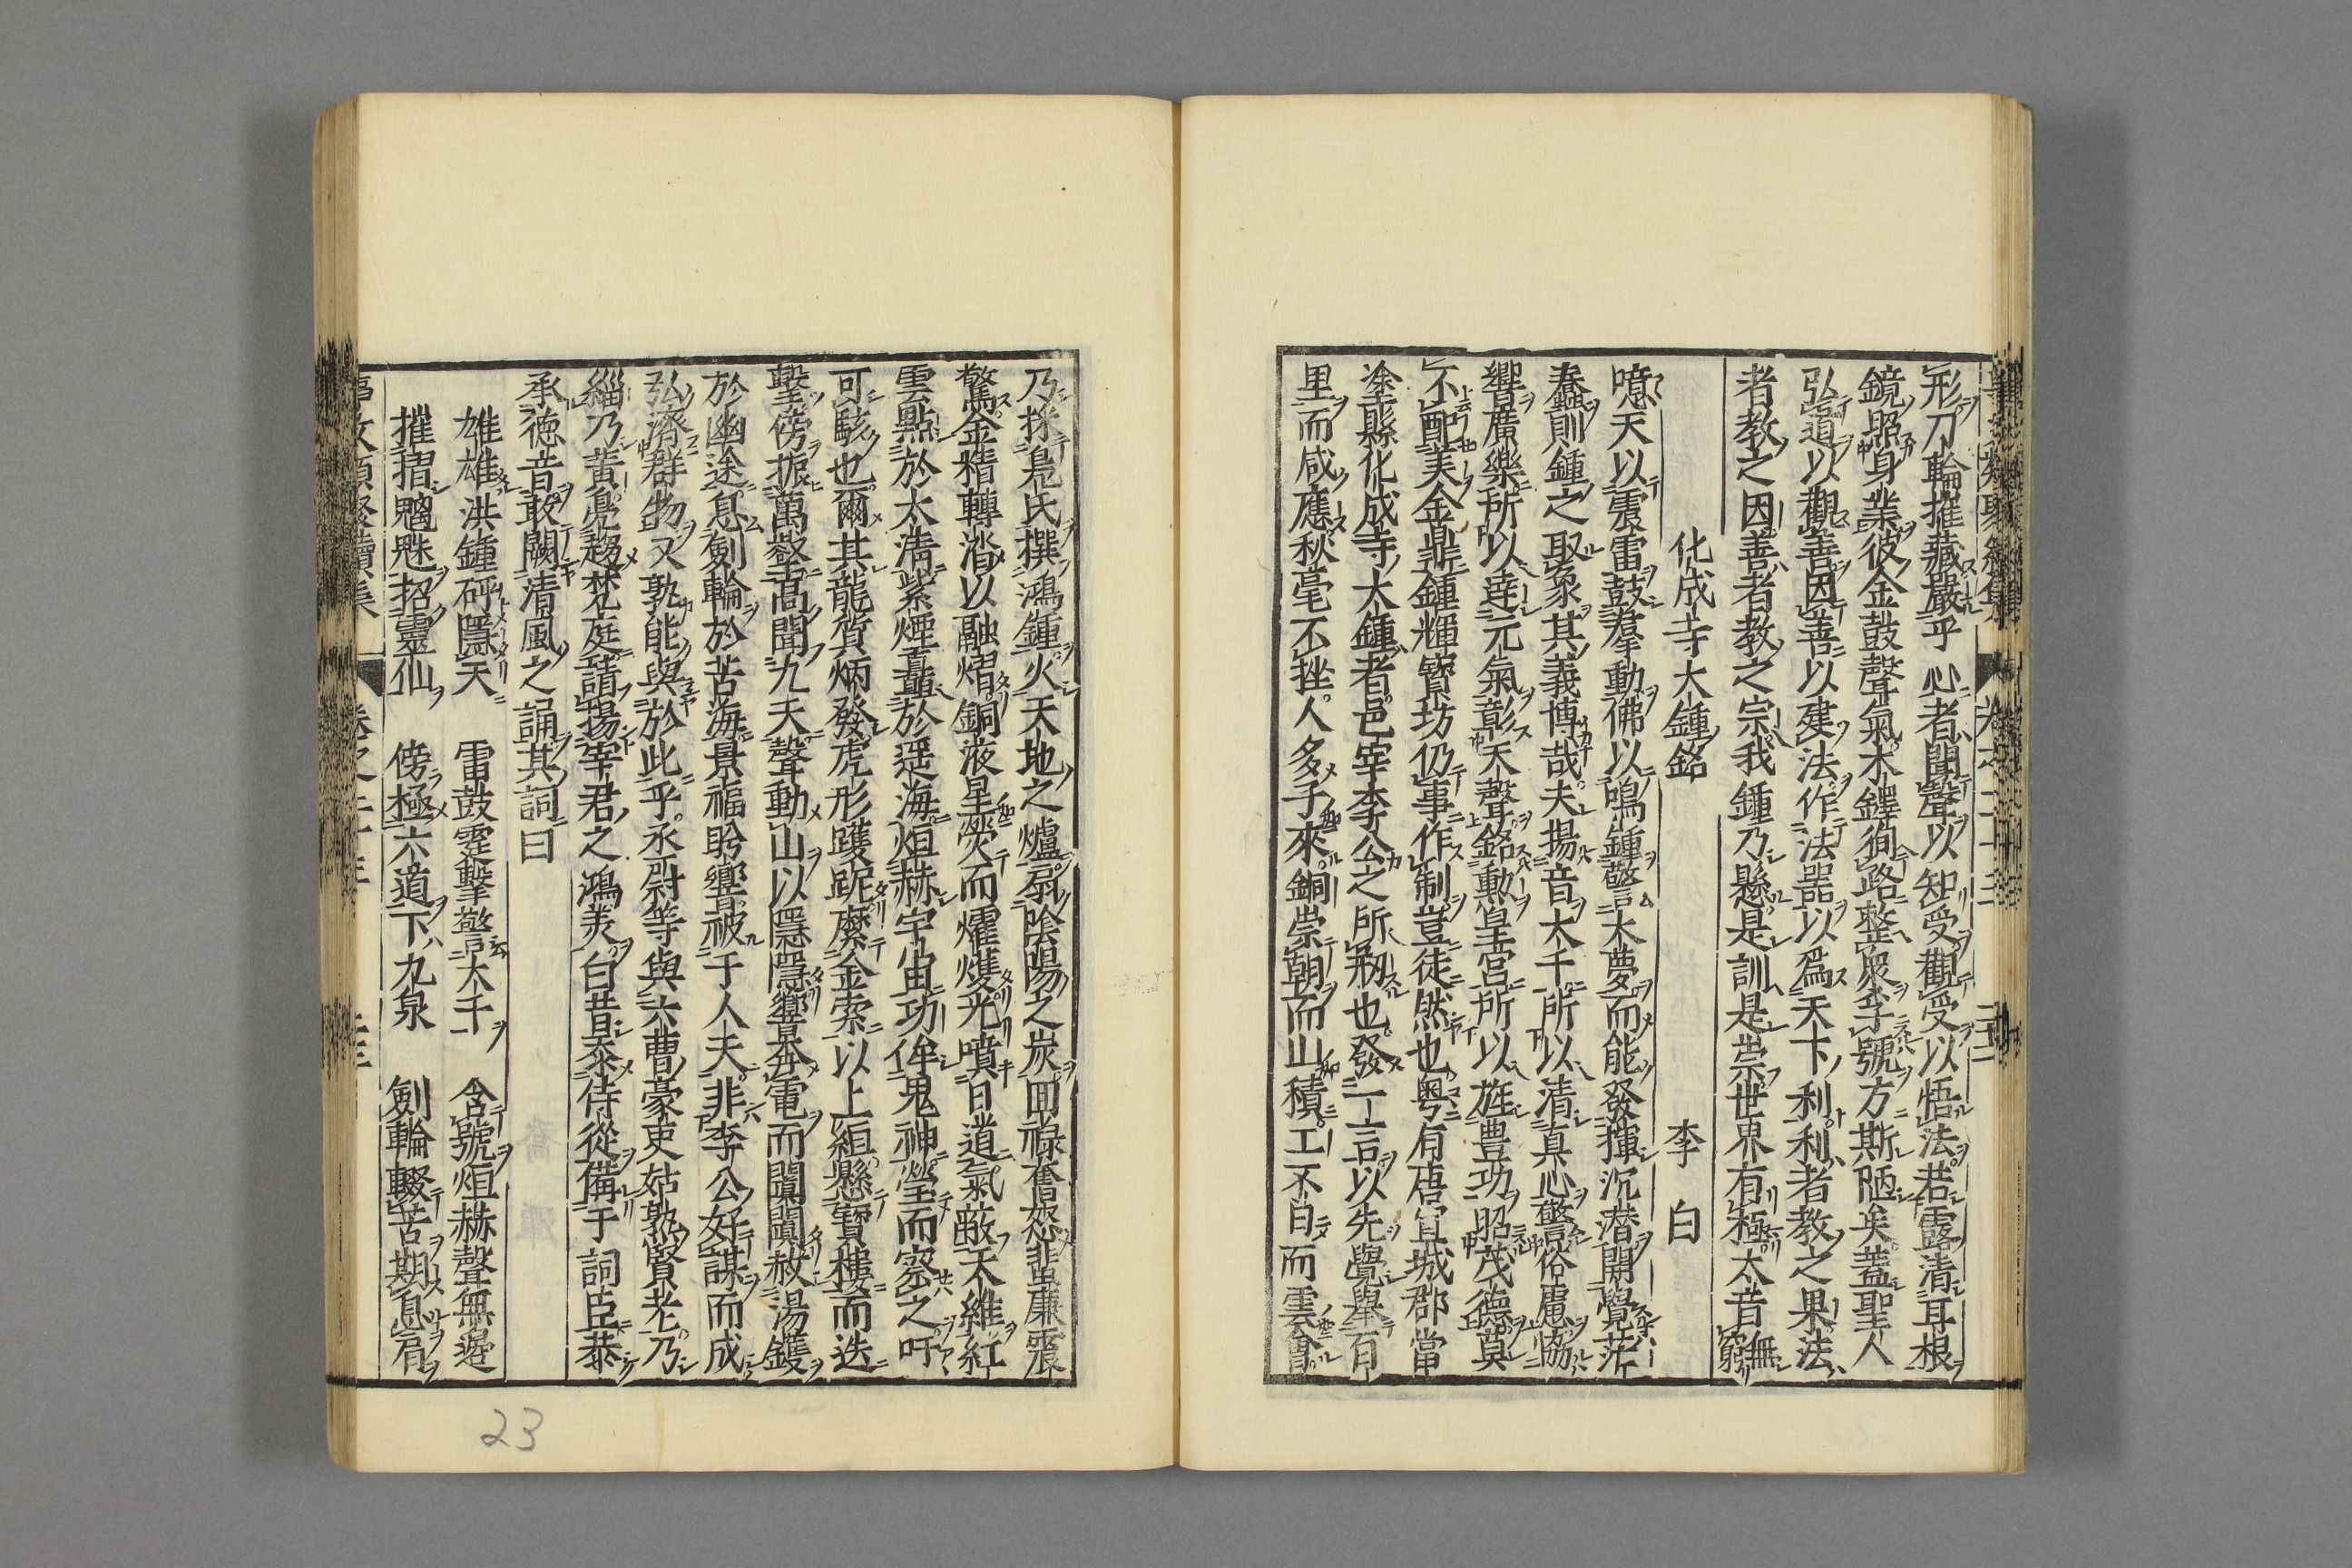 形刀輪摧藏嚴乎心者聞聲以知受觀受以悟法若露清耳根
鏡昭身業彼金鼓聲氣木鐸徇路整衆李號方斯陋矣蓋聖人
弘道以觀善因善以建法作法噐以爲天下利利者教之果法
者教之因善者教之宗我鍾乃懸是訓是崇世界有極太音無窮
化成寺大鍾銘 李白
噫天以震雷鼓羣動佛以鳴鍾警大夢而能發揮沉潜開覺茫
蠢則鍾之取象其義博哉夫揚音大千所以清真心警俗慮協
響廣樂所以逹元氣彰天聲銘勲皇宮所以旌豊功昭茂德莫
不配美金鼎鍾輝寳坊仍事作制豈徒然也粤有唐宣城郡當
塗縣化成寺大鍾者邑宰李公之所剏也發一言以先覺舉百
里而咸應秋毫不挫人多子來銅崇朝而山積工不日而雲會
乃採鳬氏撰鴻鍾火天地之爐扇陰陽之炭囬祿奮怒蜚廉震
驚金精轉涾以融熠銅液星熒而燿㷴光噴日道氣蔽天維紅
雲點於太清紫煙矗於遥海烜赫宇宙功侔鬼神瑩而察之吁
可駭也爾其龍質炳發虎形躨跜縻金索以上絙懸寳樓而迭
擊傍振萬壑高聞九天聲動山以隱隱響奔電而闐闐赦湯鑊
於幽途息劍輪於苦海景福肸響被于人夫非李公好謀而成
弘濟群物又孰能與於此乎丞尉等與六曹豪吏姑孰賢老乃
緇乃黄鳬趨梵庭請揚宰君之鴻美白昔忝侍從備于詞臣恭
承德音敢闕清風之誦其詞曰
雄雄洪鍾砰隱天 雷鼓霆擊警大千 含號烜赫聲無邊
摧㨹魑魅招靈仙 傍極六道下九泉 劍輪輟苦期息肩
卷之二十三
23